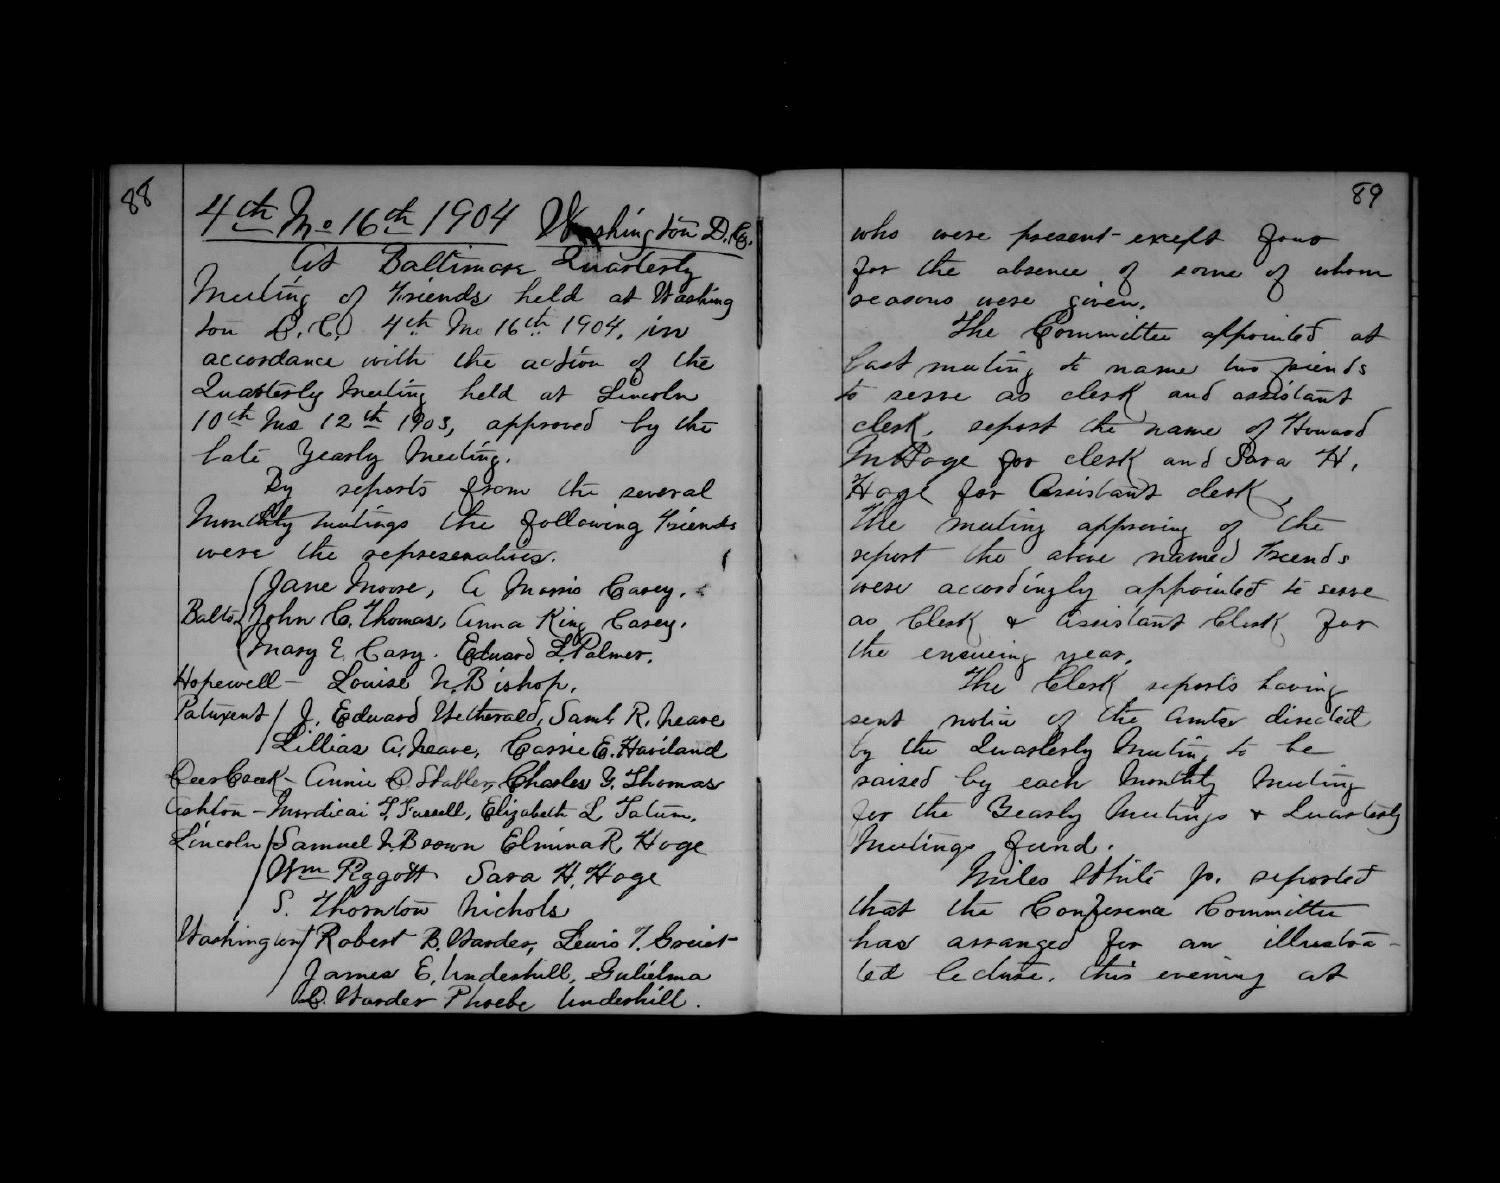 88
4th Mo 16th 1904 Washington D.C.
At Baltimore Quarterly
Meeting of Friends held at Washing
ton D.C. 4th Mo 16th 1904, in
accordance with the action of the
Quarterly Meeting held at Lincoln
10th Mo 12th 1903, approved by the
late Yearly Meeting.
By reports from the several
Monthly Meetings the following Friends
were the representatives.
Jane Moore, A Morris Carey.
Balto. John C. Thomas, Anna King Carey.
Mary E. Cary. Edward L. Palmer.
Hopewell - Louise N. Bishop.
Patuxent J. Edward Wetherald, Saml. R. Neave
Lillias A. Neave, Cassie E. Haviland
Deer Creek - Annie D Stabler, Charles Y. Thomas
Ashton - Mordicai T. Fussell, Elizabeth L Tatum.
Lincoln Samuel N. Brown Elmina R. Hoge
Wm Piggott Sara H. Hoge
S. Thornton Nichols
Washington Robert B. Warder, Lewis T. Greist
James E. Underhill, Gulielma
D. Warder Phoebe Underhill.
89
who were present except four
for the absence of some of whom
reasons were given.
The Committee appointed at
last meeting to name two friends
to serve as clerk and assistant
clerk, report the name of Howard
M Hoge for clerk and Sara H.
Hoge for Assistant clerk,
The meeting approving of the
report the above named Friends
were accordingly appointed to serve
as Clerk & Assistant Clerk for
the ensuing year.
The Clerk reports having
sent notice of the amter directed
by the Quarterly Meeting to be
raised by each Monthly Meeting
for the Yearly Meetings & Quarterly
Meetings fund.
Miles White Jr. reported
that the Conference Committee
has arranged for an illustra-
ted lecture, this evening at